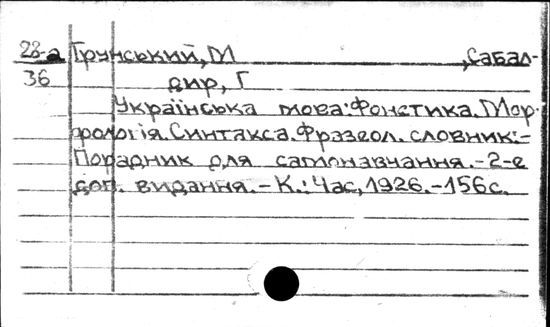 28-а Грунський, М , Сабал-
36 дир, Г
Українська мова: Фонетика. Мор-
фологія. Синтакса. Фразеол. словник: -
Порадник для самонавчання. - 2-е
доп. видання. - К.: Час, 1926. - 156 с.